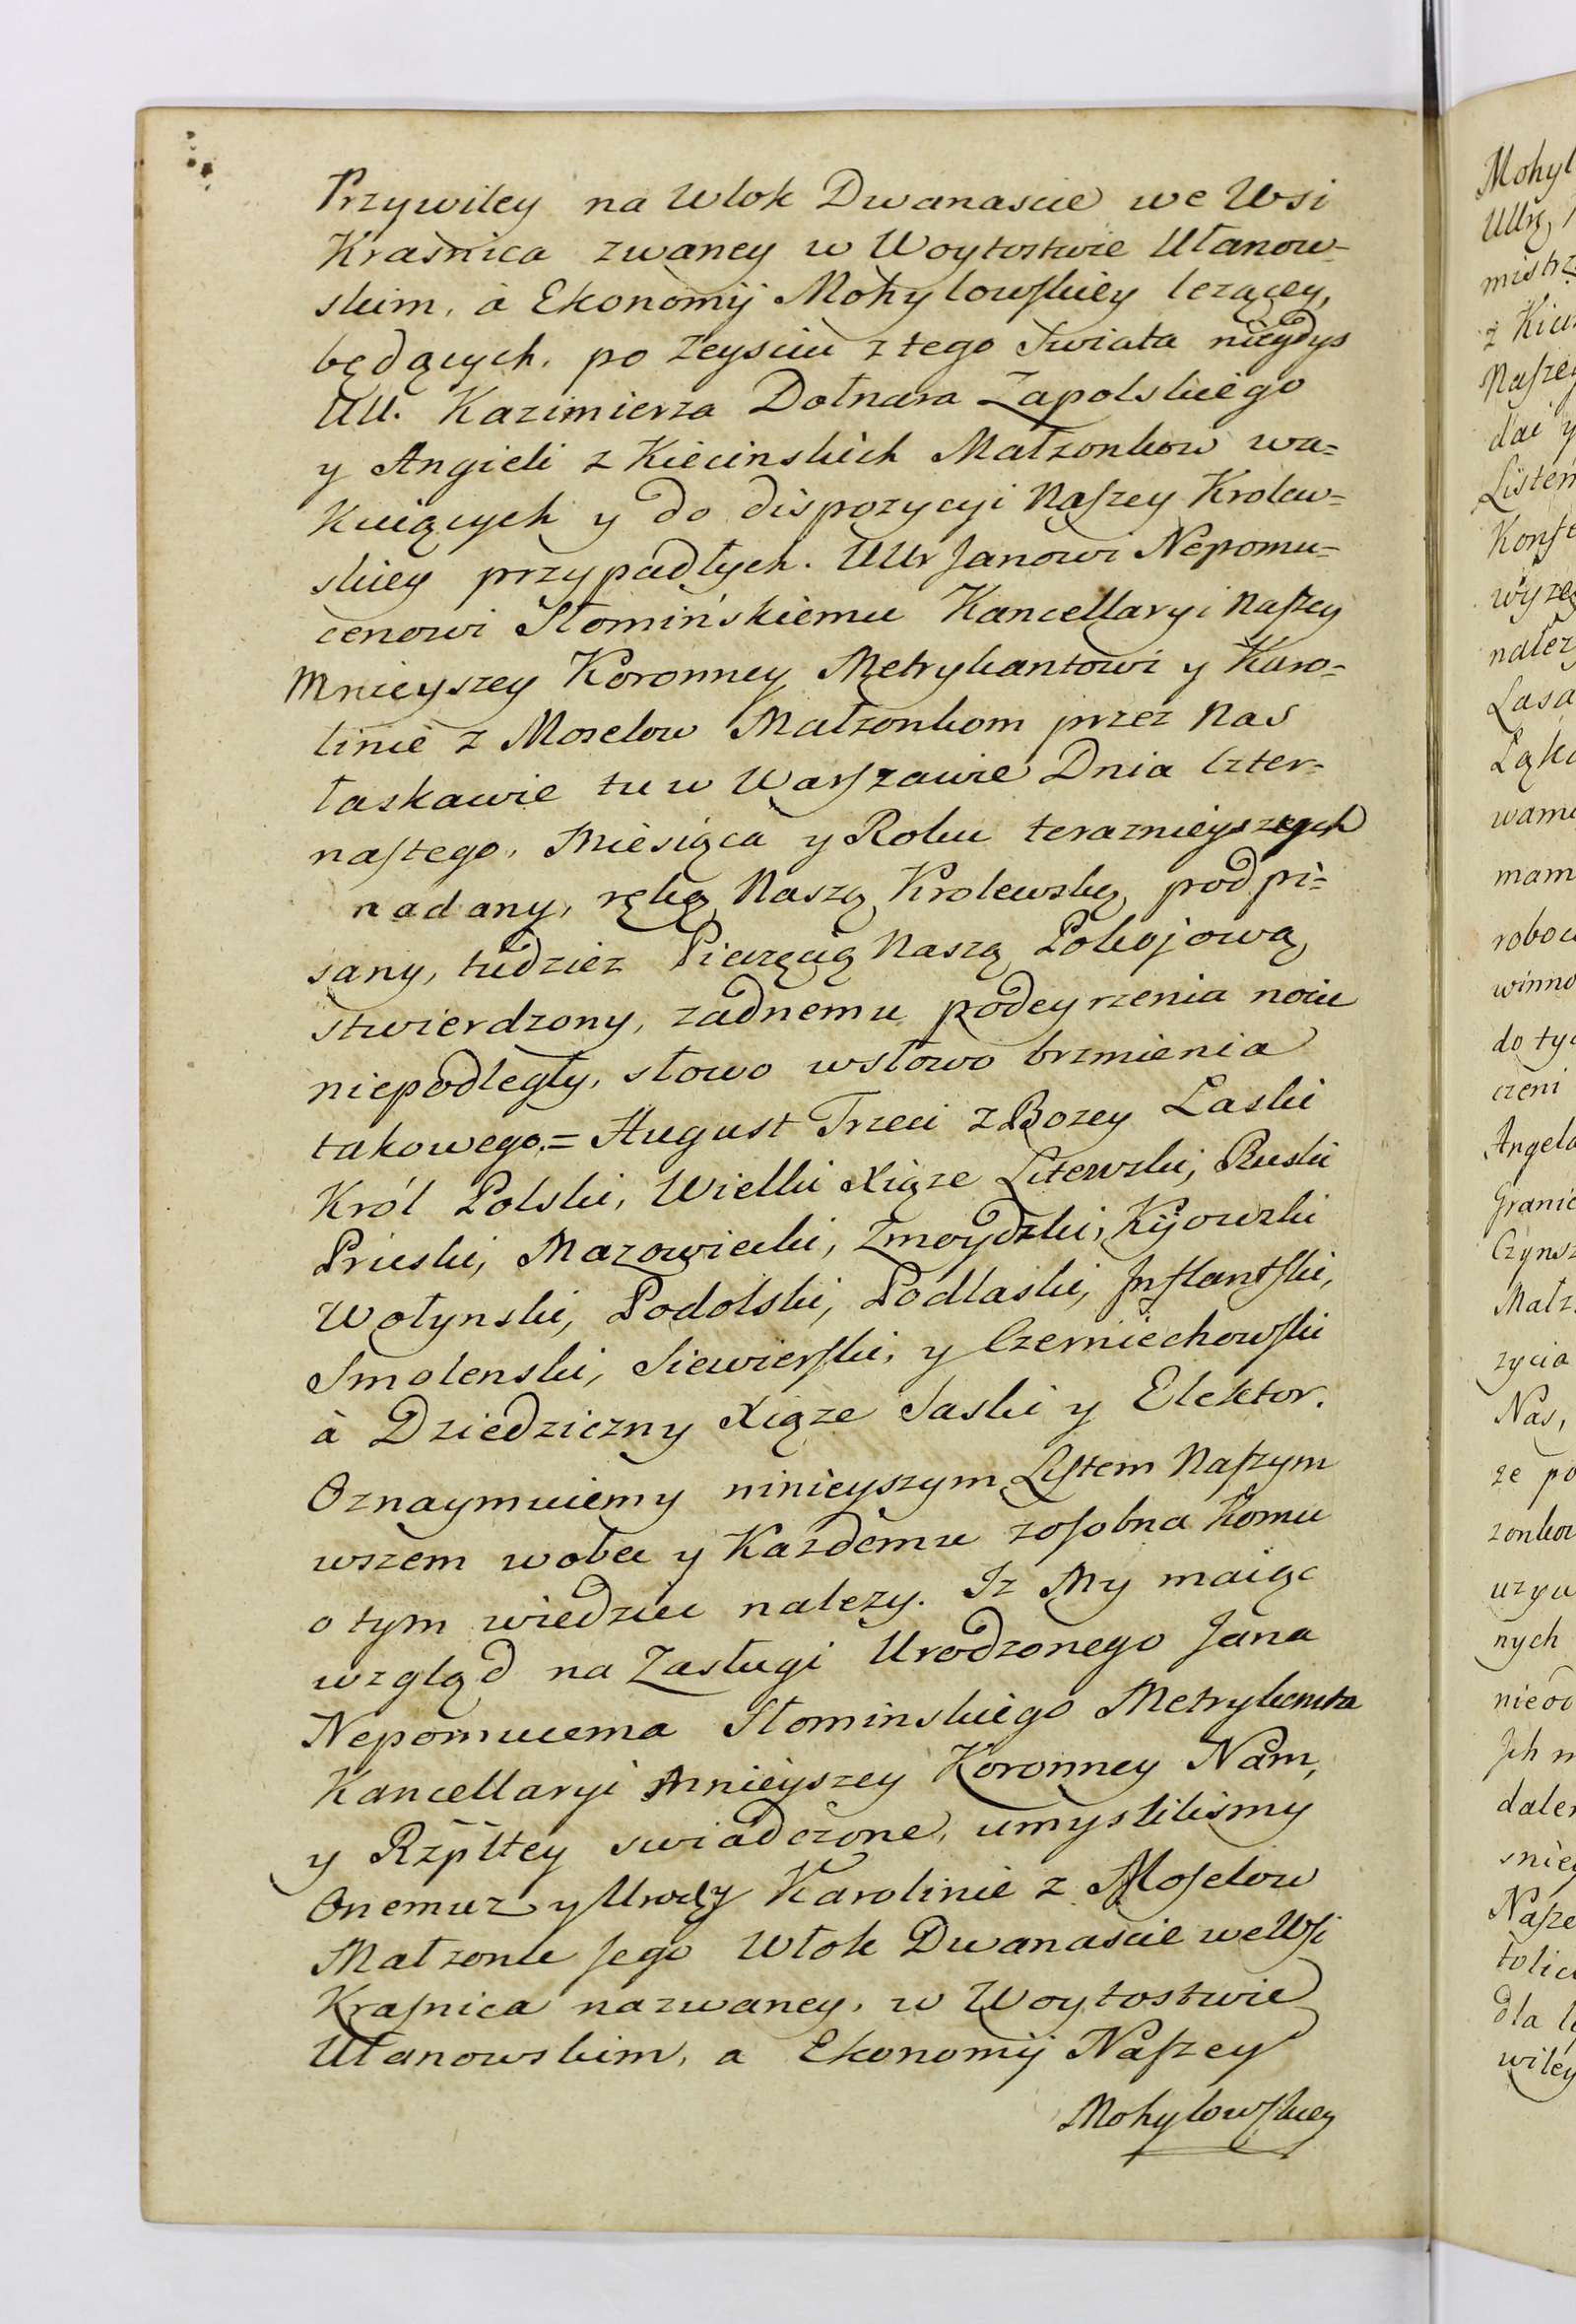 Przywiley na Wlok Dwanascie we Wsi
Kraśnica zwaney w Woytostwie Ułanow-
skim, à Ekonomij Mohylowskiey lezącey,
będących, po Zeysciu z tego Swiata niegdys
UU. Kazimierza Dołnara Zapolskiego
y Angieli z Kiecinskich Małzonkow wa=
Kuiących y do dispozycyi Naszey Krolew=
skiey przypadłych. UUr Janowi Nepomu=
cenowi Słomińskiemu Kancellaryi Naszey
Mnieyszey Koronney Metrykantowi y Karo-
linie z Moselow Małzonkom przez Nas
łaskawie tu w Warszawie Dnia Czter=
nastego, Miesiąca y Roku terazniejszych
nadany, ręką Naszą Krolewską podpi=
sany, tudziez Pieczęcią Naszą Pokojową
stwierdzony, zadnemu podeyrzenia nocie
niepodległy, słowo wsłowo brzmienia
takowego.= August Trzeci z Bozey Laski
Król Polski, Wielki Xiąze Litewski, Ruski
Pruski, Mazowiecki, Zmoydzki, Kijowski
Wołynski, Podolski, Podlaski, Inflantski,
Smolenski, Siewierski, y Czerniechowski
à Dziedziczny Xiąze Saski y Elektor.
Oznaymuiemy ninieyszym Listem Naszym
wszem wobec y Kazdemu zosobna Komu
o tym wiedziec nalezy. Iz My maiąc
wzgląd na Zasługi Urodzonego Jana
Nepomucena Słominskiego Metrykanta
Kancellaryi Mnieyszey Koronney Nam,
y Rzpltey swiadczone, umyslilismy
Onemuz y Urodzy Karolinie z Moselow
Małzonce Jego Włok Dwanascie we Wsi
Krasnica nazwaney, w Woytostwie
Ułanowskim, a Ekonomij Naszey
Mohylowskiey
Mohyl
UUrz,
mistrz
z Kiec
Naszey
dać y
Listem
Konse
wyzeg
nalez
Lasa
Łąka
wami
mam
roboc
winno
do tyc
czeni
Angela
Granic
Czynsz
Małz.
zycia
Nas,
ze po
zonkow
uzyw
nych
nieod
Ich m
daler
sniey
Nasze
tolic
dla l
wiley